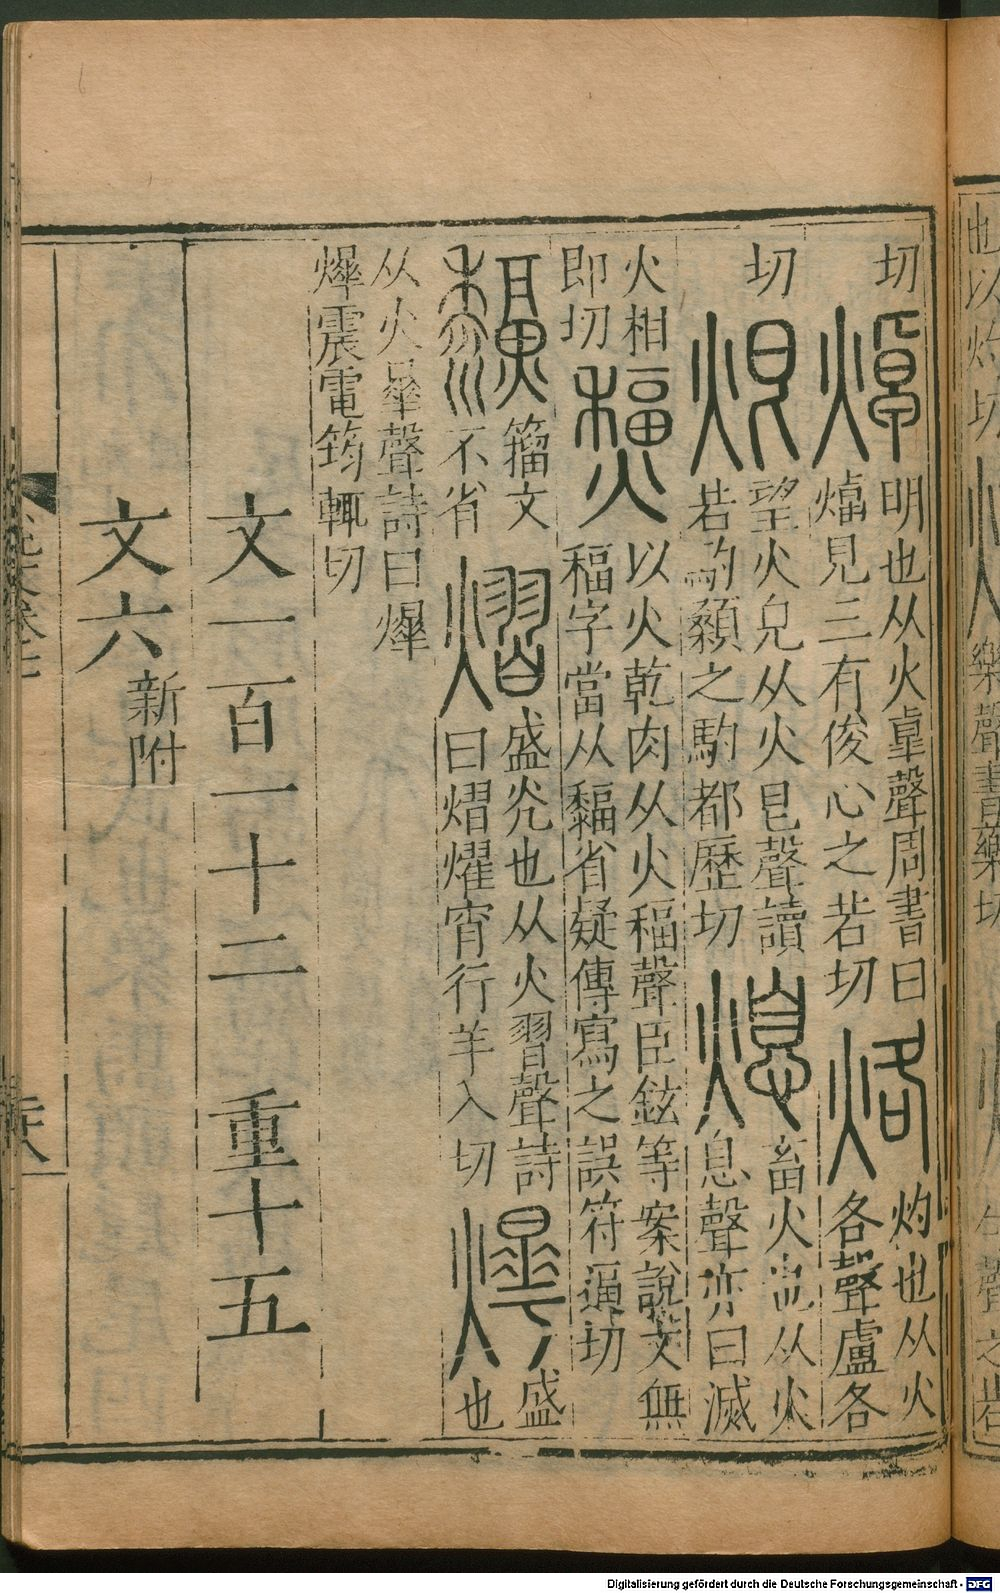 也以灼切
樂聲書藥切
聲之若
切
焯
明也从火卓聲周書曰
焯見三有俊心之若切
烙
灼也从火
各聲盧各
切
望火皃从火皀聲讀
若馰顙之馰都歷切
熄
畜火也从火
息聲亦曰滅
火相
即切
以火乾肉从火稫聲臣鉉等案說文無
稫字當从䵗省疑傳寫之誤符逼切
籒文
不省
熠
盛光也从火習聲詩
曰熠燿宵行羊入切
爗
盛
也
从火曅聲詩曰爗
爗震電筠輒切
文一百一十二 重十五
文六新附